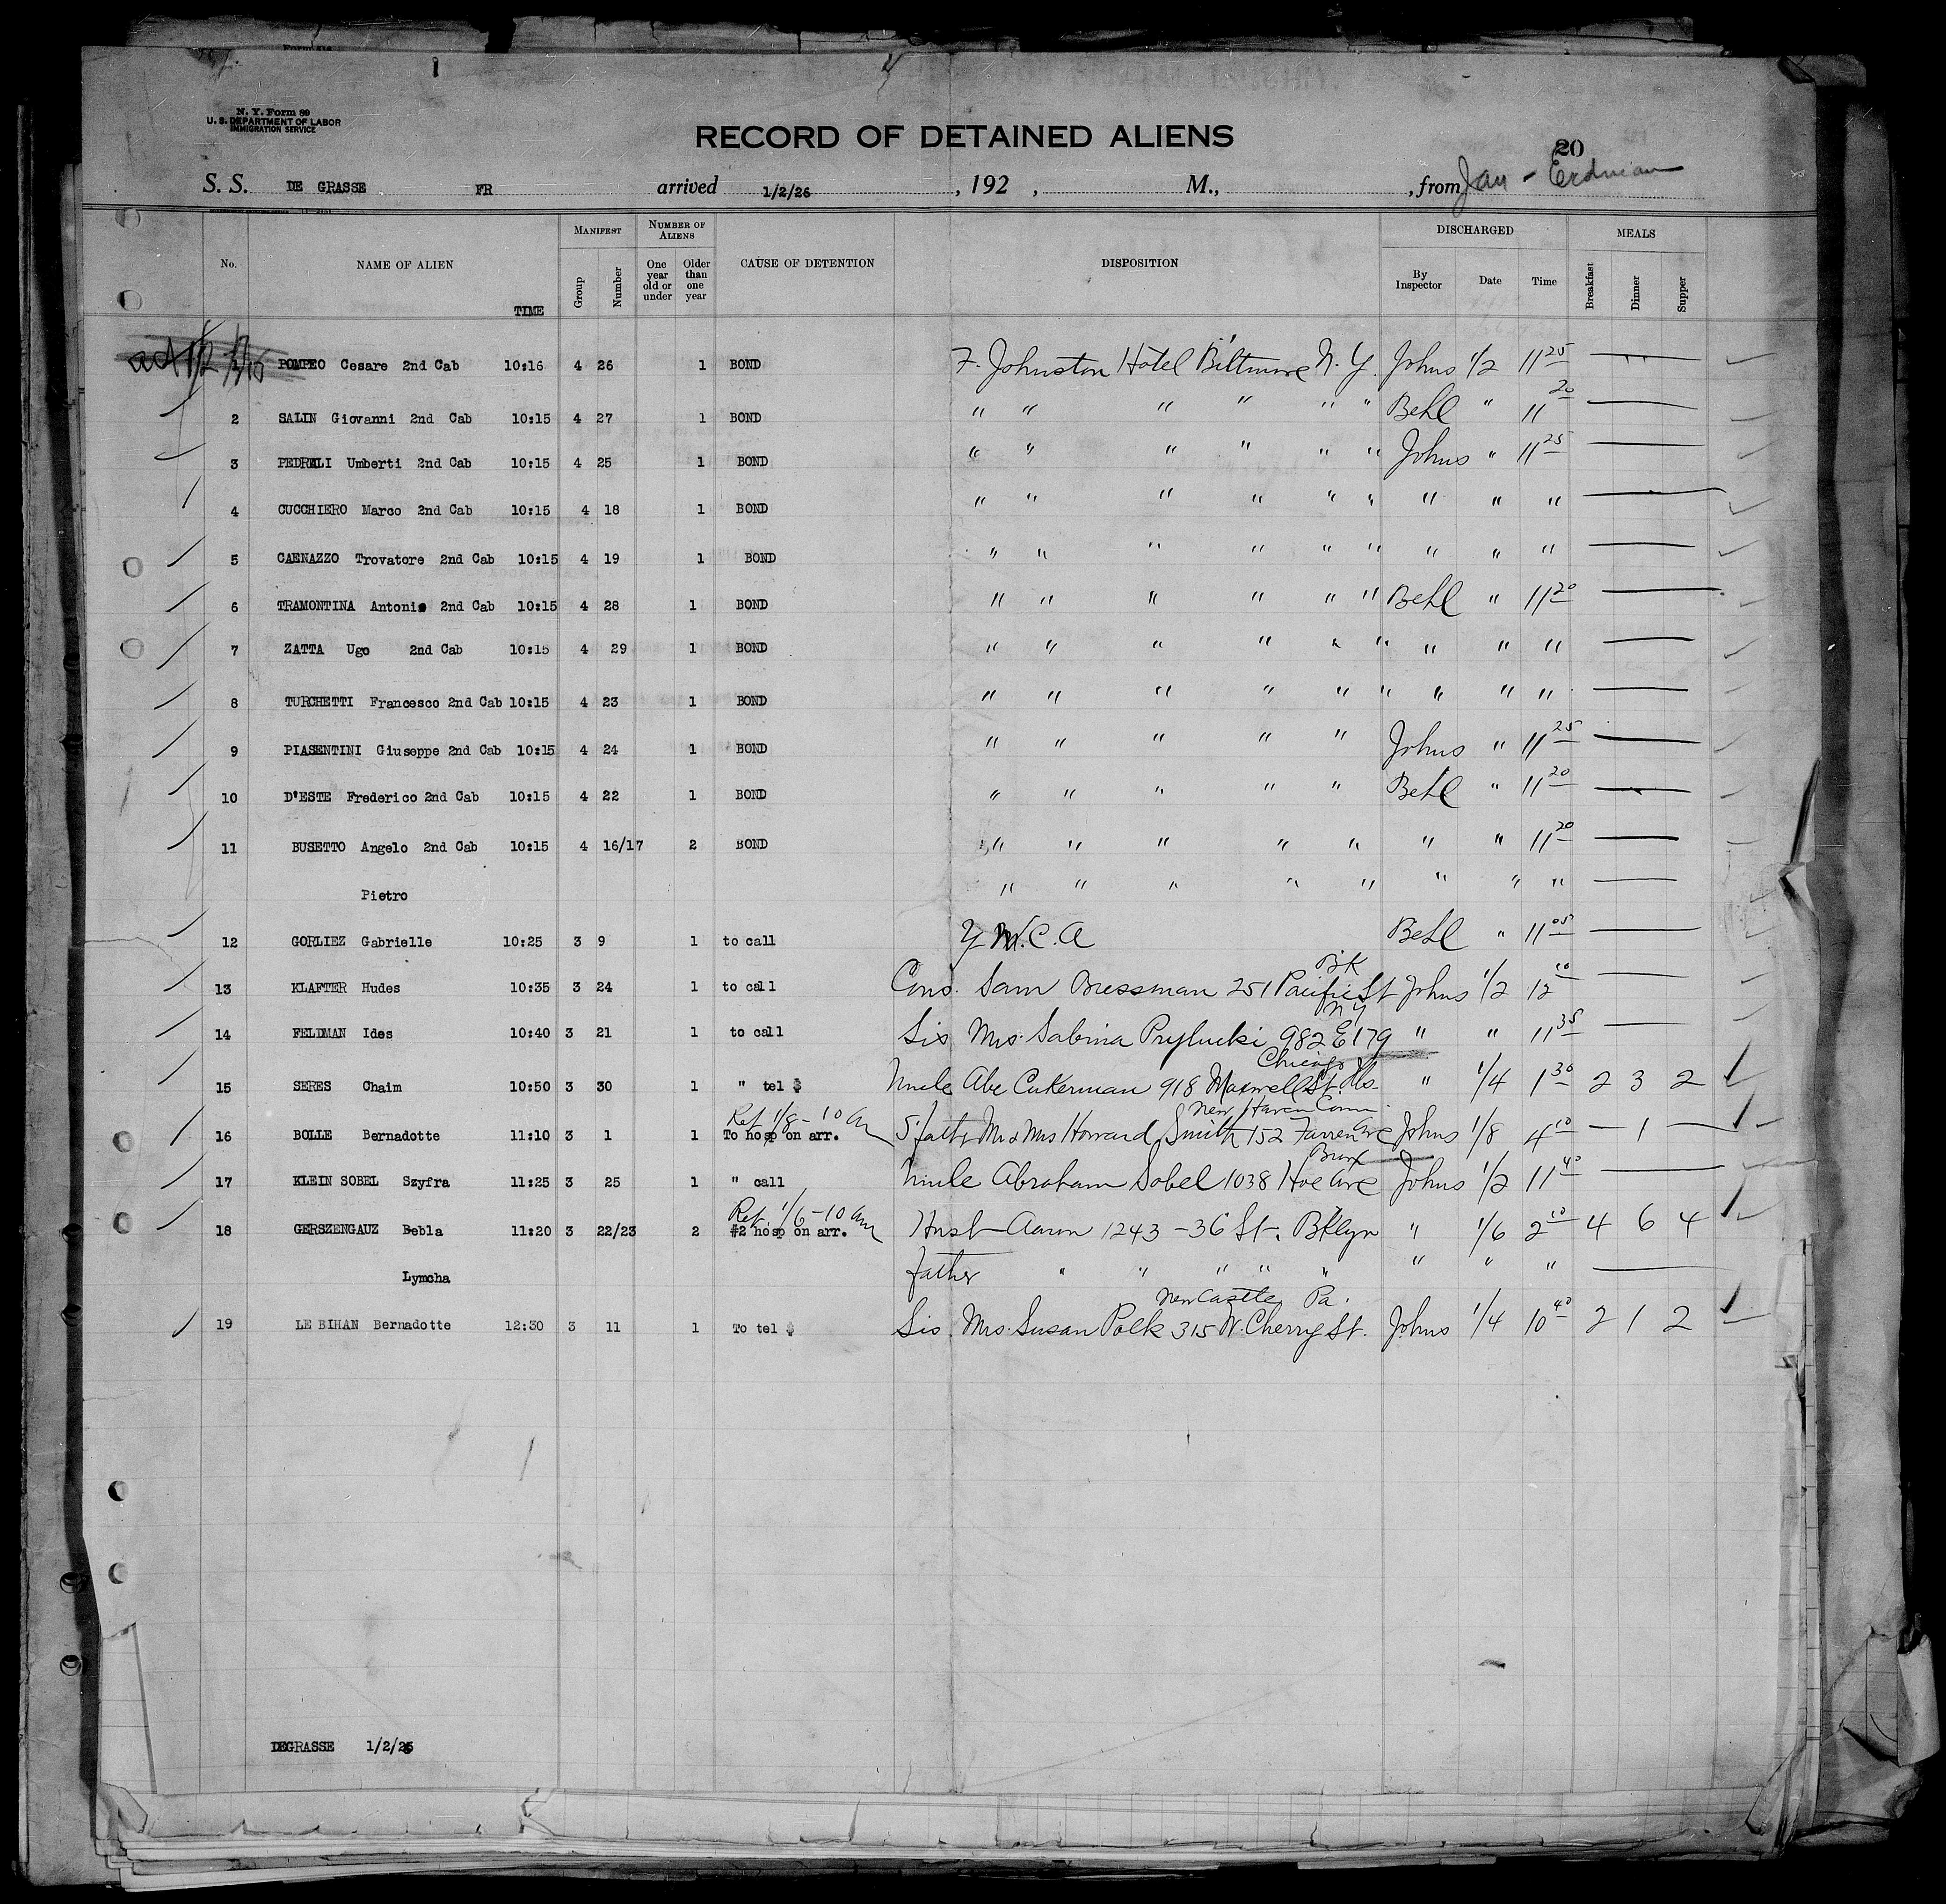 N. Y. Form 89
U. S. DEPARTMENT OF LABOR
IMMIGRATION SERVICE
RECORD OF DETAINED ALIENS
20
S. S. DE GRASSE FR arrived 1/2/26 , 192 , M., , from Jan -
No. NAME OF ALIEN TIME MANIFEST Group Number NUMBER OF ALIENS One year old or under Older than one year CAUSE OF DETENTION DISPOSITION DISCHARGED By Inspector Date Time MEALS Breakfast Dinner Supper
1 POMPEO Cesare 2nd Cab 10:16 4 26 1 BOND F. Johnston Hotel Biltmore N. Y. Johns 1/2 11 25
2 SALIN Giovanni 2nd Cab 10:15 4 27 1 BOND " " " " " " Behl " 11 20
3 PEDRALI Umberti 2nd Cab 10:15 4 25 1 BOND " " " " " " Johns " 11 25
4 CUCCHIERO Marco 2nd Cab 10:15 4 18 1 BOND " " " " " " " " "
5 CAENAZZO Trovatore 2nd Cab 10:15 4 19 1 BOND " " " " " " " " "
6 TRAMONTINA Antonio 2nd Cab 10:15 4 28 1 BOND " " " " " " Behl " 11 20
7 ZATTA Ugo 2nd Cab 10:15 4 29 1 BOND " " " " " " " " "
8 TURCHETTI Francesco 2nd Cab 10:15 4 23 1 BOND " " " " " " " " "
9 PIASENTINI Giuseppe 2nd Cab 10:15 4 24 1 BOND " " " " " Johns " 11 25
10 D'ESTE Frederico 2nd Cab 10:15 4 22 1 BOND " " " " " Behl " 11 20
11 BUSETTO Angelo 2nd Cab 10:15 4 16/17 2 BOND " " " " " " " 11 20
Pietro " " " " " " " "
12 GORLIEZ Gabrielle 10:25 3 9 1 to call Y.W.C.A Behl " 11 05
13 KLAFTER Hudes 10:35 3 24 1 to call Cons. Sam Bressman 251 Pacific St Bk Johns 1/2 12 10
14 FELDMAN Ides 10:40 3 21 1 to call Sis Mrs. Sabina Prylucki 982 E 179 NY " " 11 35
15 SERES Chaim 10:50 3 30 1 " tel $ Uncle Abe Cukerman 918 Maxwell St Chicago Ills. " 1/4 1 30 2 3 2
16 BOLLE Bernadotte 11:10 3 1 1 To hosp on arr. Ret 1/8 - 10 am S. father Mr & Mrs Howard Smith 152 Farren Ave New Haven Conn. Johns 1/8 4 10 1
17 KLEIN SOBEL Szyfra 11:25 3 25 1 " call Uncle Abraham Sobel 1038 Hoe Ave Bronx Johns 1/2 11 40
18 GERSZENGAUZ Bebla 11:20 3 22/23 2 #2 hosp on arr. Ret. 1/6 - 10 am Husb Aaron 1243 - 36 St. Bklyn " 1/6 2 10 4 6 4
Lymcha father " " " " " " " "
19 LE BIHAN Bernadotte 12:30 3 11 1 To tel $ Sis. Mrs. Susan Polk 315 W. Cherry St. New Castle Pa. Johns 1/4 10 40 2 1 2
DEGRASSE 1/2/26